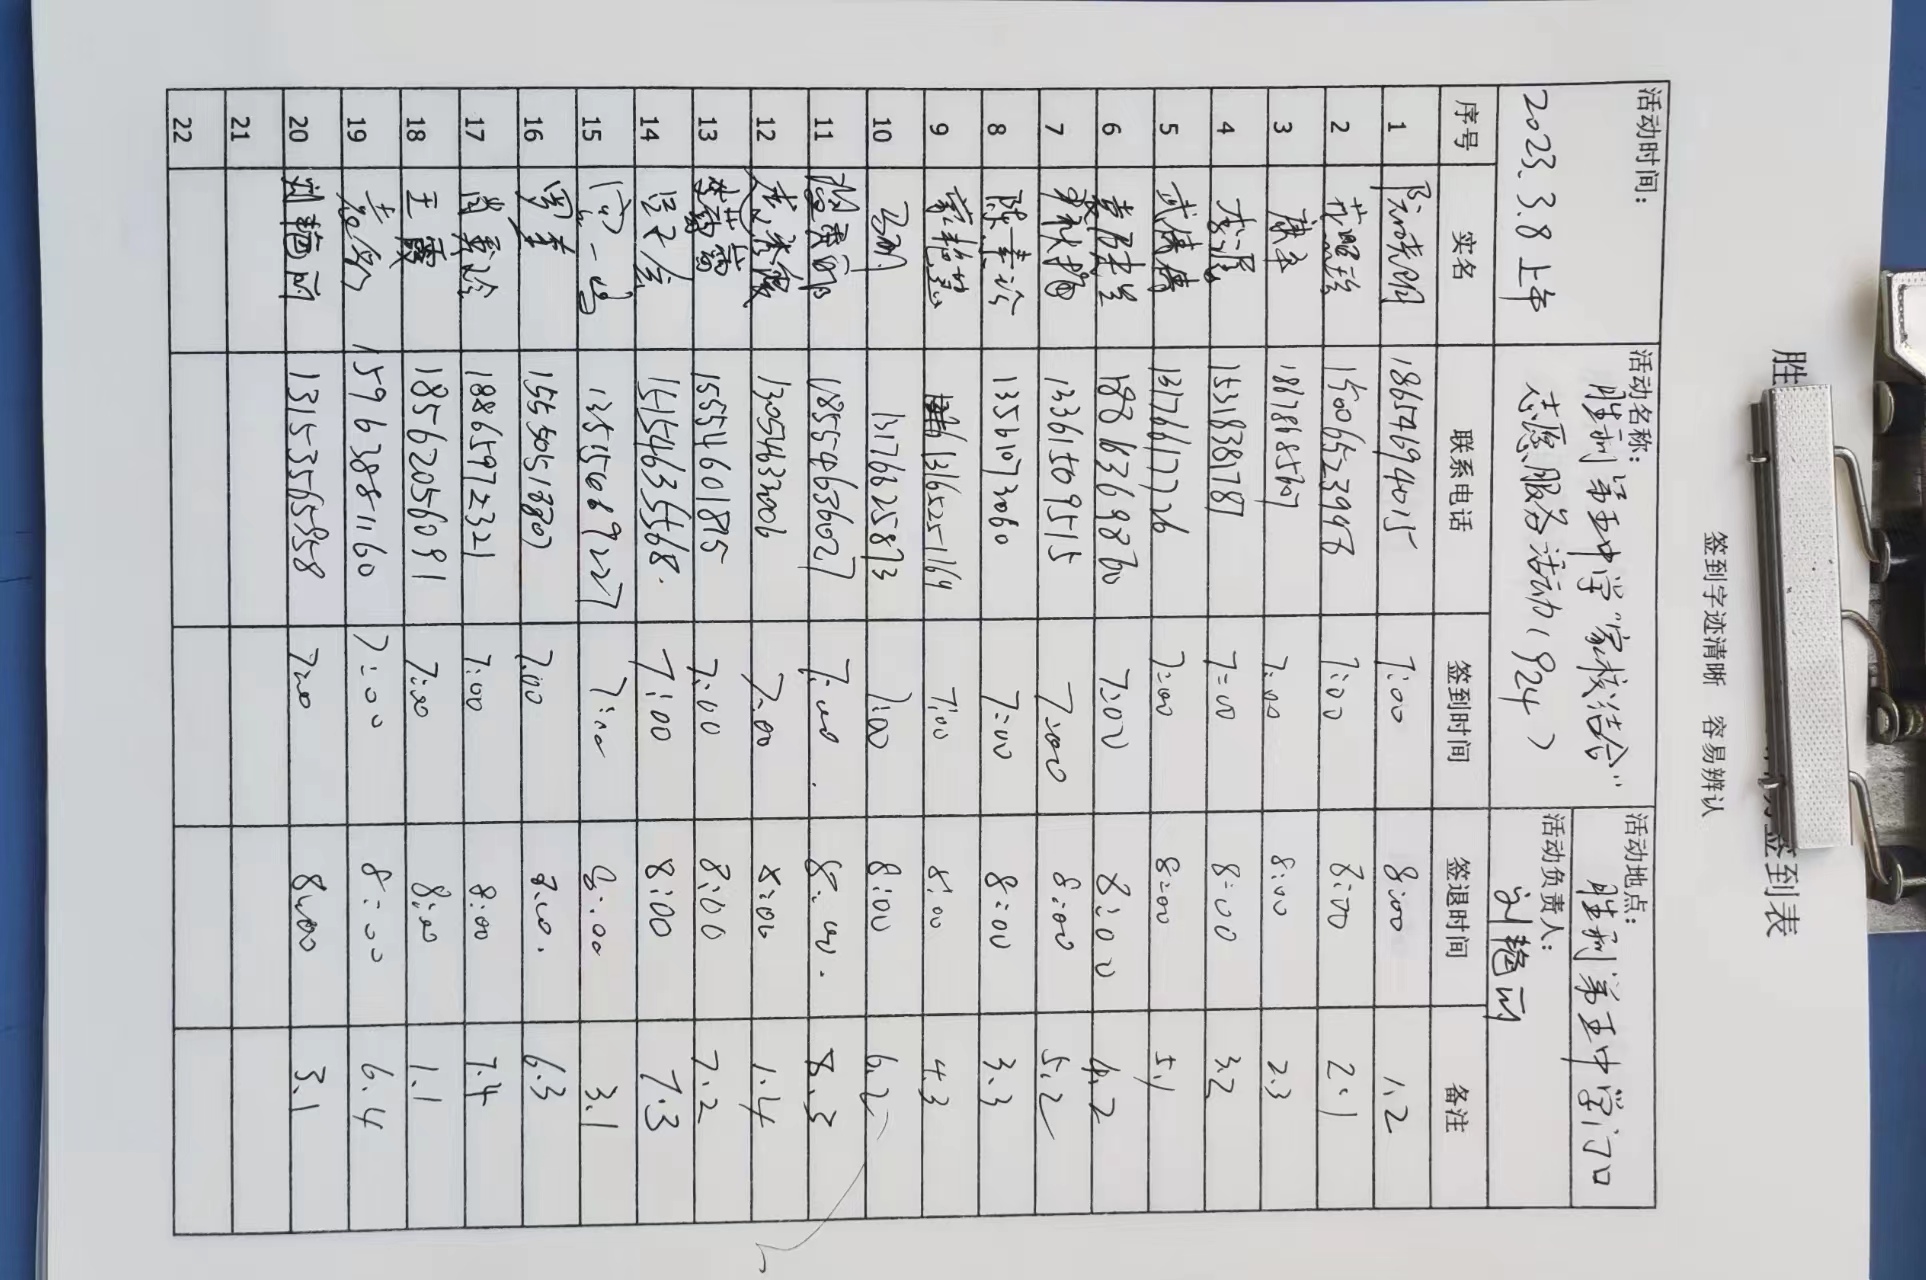 胜
签到表
签到字迹清晰 容易辨认
活动时间：
2023.3.8 上午
活动名称：
胜利第五中学“家校结合”
志愿服务活动（924）
活动地点：
胜利第五中学门口
活动负责人：
刘艳丽
序号 实名 联系电话 签到时间 签退时间 备注
1 陈晓朋 18654694015 7:00 8:00 1.2
2 15006523998 7:00 8:00 2.1
3 康玉 7:00 8:00 2.3
4 李湿 15318381787 7:00 8:00 3.2
5 武倩倩 13176617726 7:00 8:00 5.1
6 18863698760 7:00 8:00 4.2
7 13361509515 7:00 8:00 5.2
8 陈素诊 13561073060 7:00 8:00 3.3
9 霍艳慧 13165251164 7:00 8:00 4.3
10 13176825873 7:00 8:00 6.2
11 18554636027 7:00 8:00 8.3
12 13054633006 7:00 8:00 1.4
13 15554601875 7:00 8:00 7.2
14 15154635568 7:00 8:00 7.3
15 13515689227 7:00 8:00 3.1
16 15550518807 7:00 8:00 6.3
17 18865972321 7:00 8:00 7.4
18 王霞 18562056091 7:00 8:00 1.1
19 15963881160 7:00 8:00 6.4
20 刘艳丽 13153565958 7:00 8:00 3.1
21
22